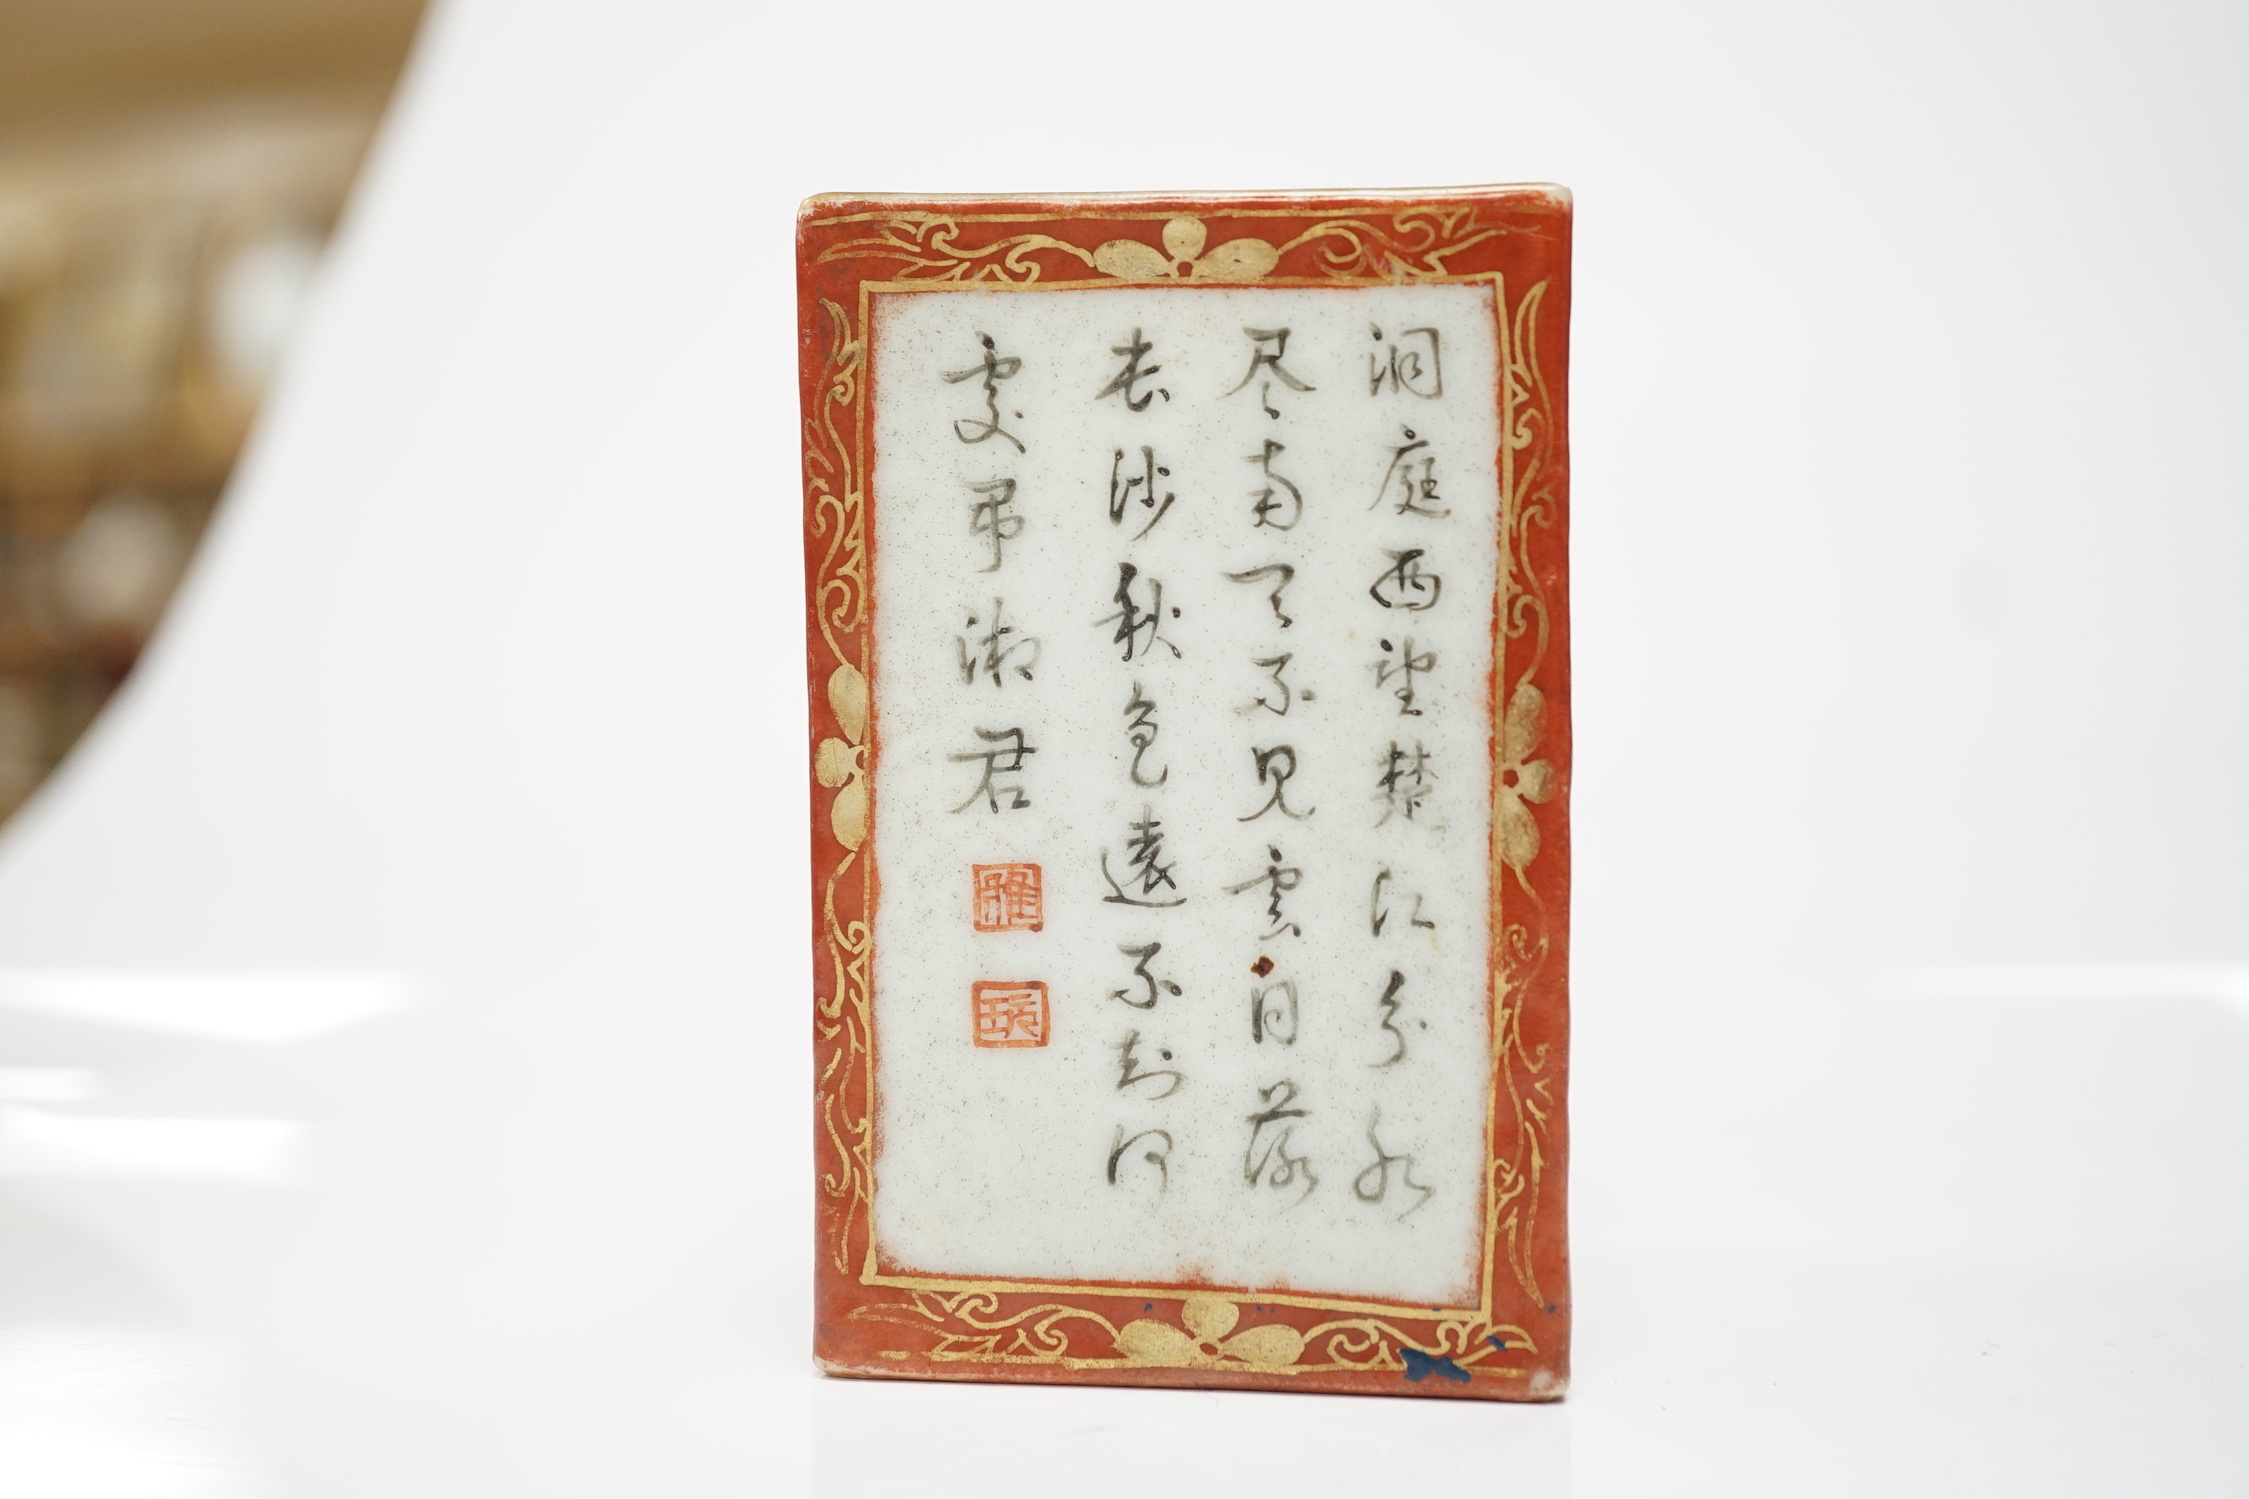 洞庭西望楚江分水
尽南天不見雲日落
長沙秋色遠不知何
處弔湘君
雅
玩